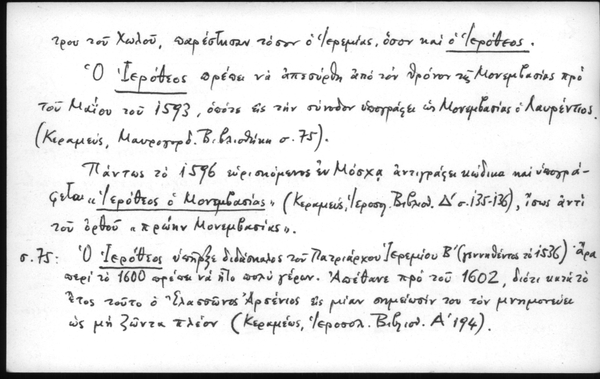 τρου τοῦ Χωλοῦ, παρέστησαν τόσον ὁ Ἱερεμίας, ὅσον καὶ ὁ Ἱερόθεος.
Ὁ Ἱερόθεος πρέπει νὰ ἀπεσύρθη ἀπὸ τὸν θρόνον τῆς Μονεμβασίας πρὸ
τοῦ Μαΐου τοῦ 1593, ὁπότε εἰς τὴν σύνοδον ὑπογράφει ὡς Μονεμβασίας ὁ Λαυρέντιος.
(Κεραμεύς, Μαυρογορδ. Βιβλιοθήκη σ. 75).
Πάντως τὸ 1596 εὑρισκόμενος ἐν Μόσχᾳ ἀντιγράφει κώδικα καὶ ὑπογρά-
φεται «Ἱερόθεος ὁ Μονεμβασίας» (Κεραμεύς, Ἱεροσ. Βιβλιοθ. Δ' σ. 135-136), ἴσως ἀντὶ
τοῦ ὀρθοῦ «πρώην Μονεμβασίας».
σ. 75: Ὁ Ἱερόθεος ὑπῆρξε διδάσκαλος τοῦ Πατριάρχου Ἱερεμίου Β' (γεννηθέντος τὸ 1536) · ἄρα
περὶ τὸ 1600 πρέπει νὰ ἦτο πολὺ γέρων. Ἀπέθανε πρὸ τοῦ 1602, διότι κατὰ τὸ
ἔτος τοῦτο ὁ Ἐλασσῶνος Ἀρσένιος εἰς μίαν σημείωσίν του τὸν μνημονεύει
ὡς μὴ ζῶντα πλέον (Κεραμέως, Ἱεροσολ. Βιβλιοθ. Α' 194).